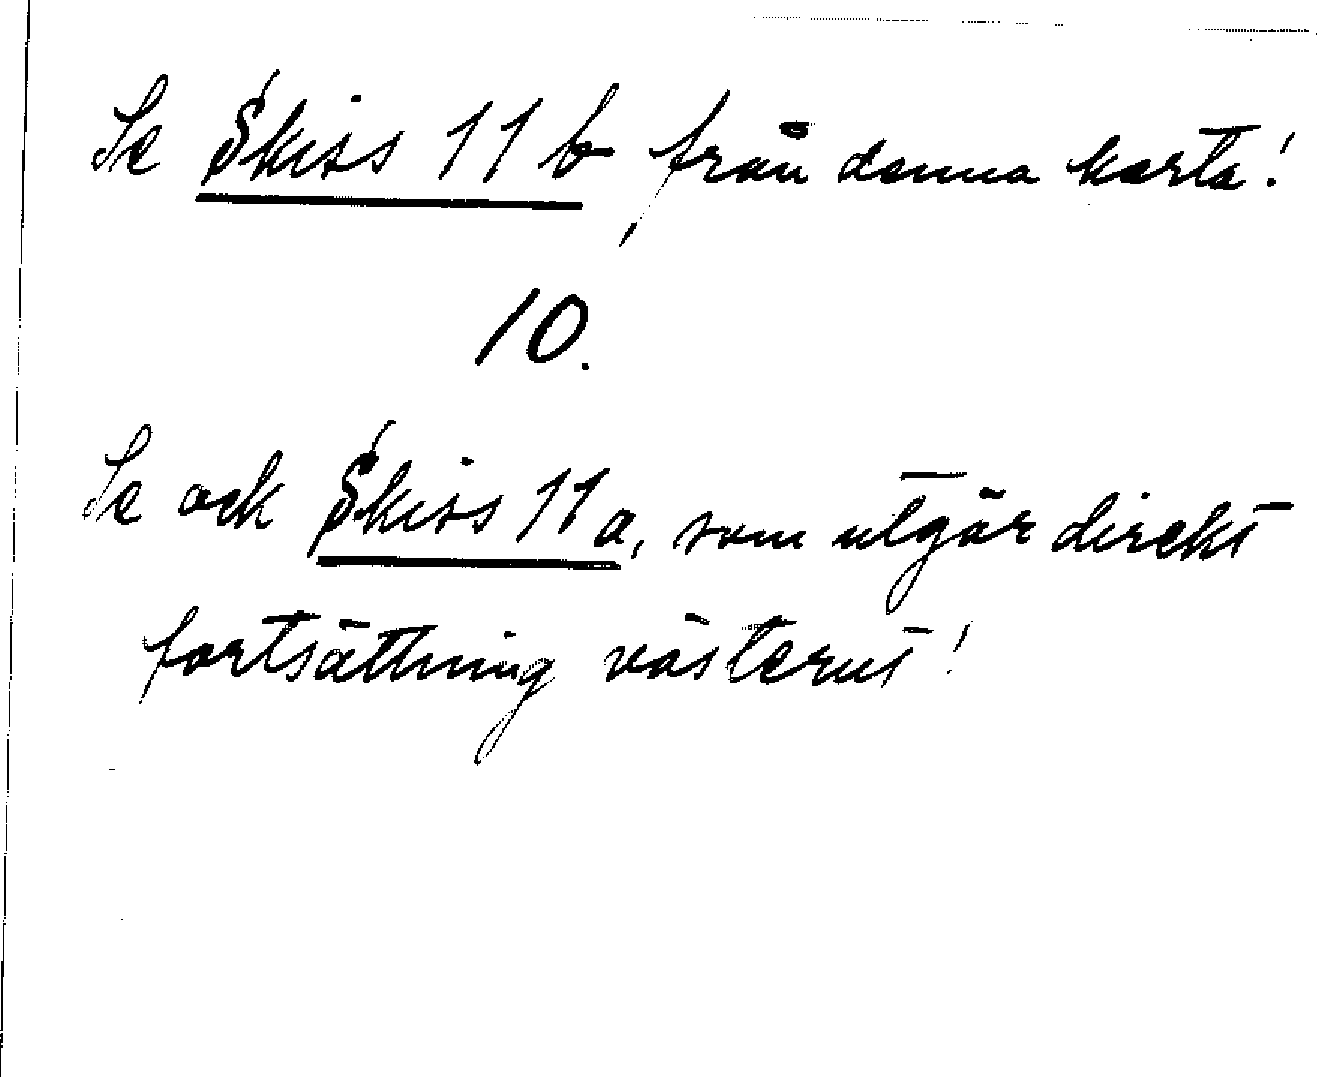 Se Skiss 11 b från denna karta!
10.
Se ock Skiss 11 a, som utgör direkt
fortsättning västerut!